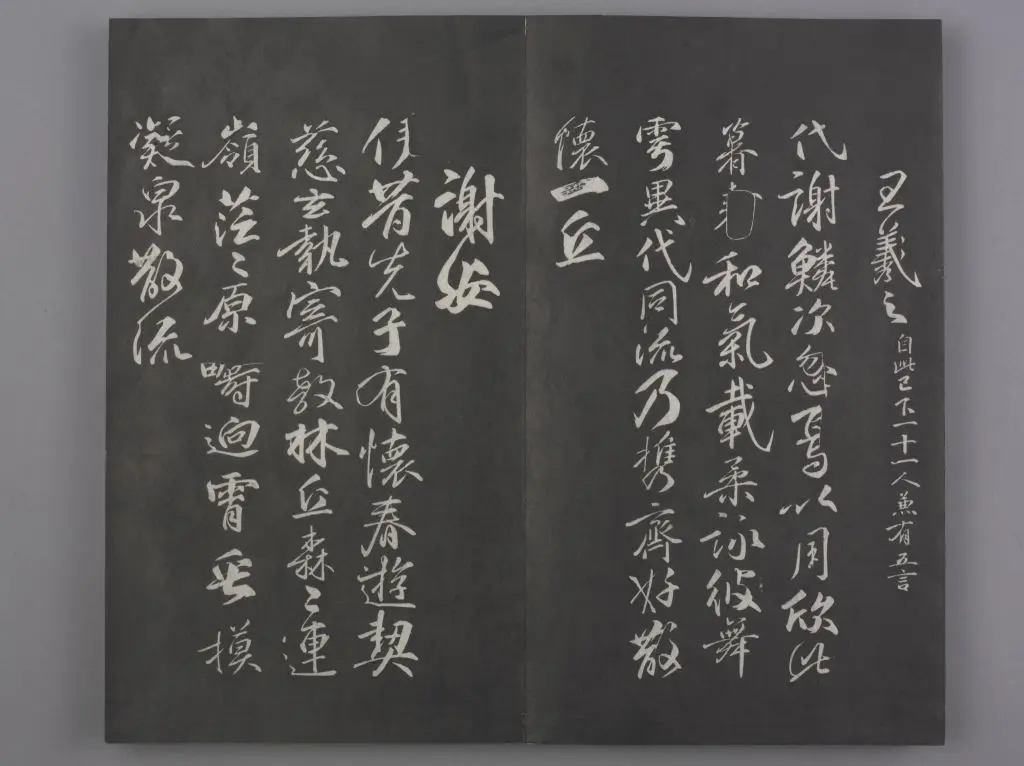 王羲之 自此已下一十一人兼有五言
代謝鱗次忽焉以周欣此
暮春和氣載柔詠彼舞
雩異代同流乃携齊好散
懷一丘
謝安
伊昔先子有懷春遊契
慈玄執寄敖林丘森〻連
嶺茫〻原疇迥霄垂模
凝泉散流